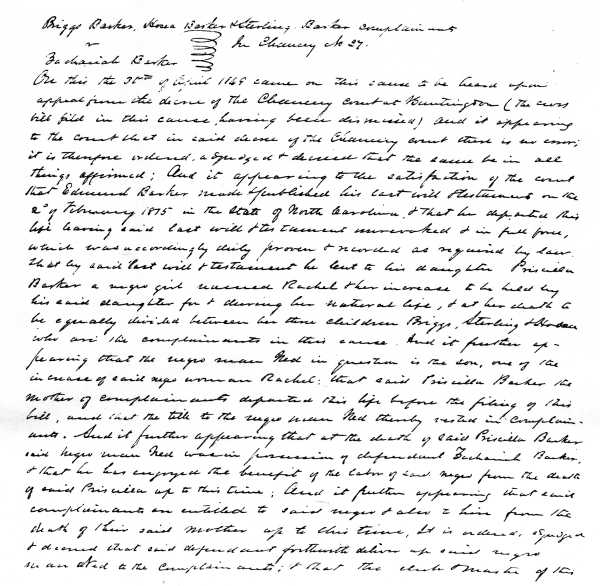 Briggs Barker, Hosea Barker & Sterling Barker Complainants
v In Chancery No 27.
Zachariah Barker
On this the 30th of April 1849 came on this cause to be heard upon
appeal from the decree of the Chancery court at Huntington (the cross
bill filed in this cause having been dismissed) and it appearing
to the court that in said decree of the Chancery court there is no error;
it is therefore ordered, adjudged & decreed that the same be in all
things affirmed; And it appearing to the satisfaction of the court
that Edmund Barker made & published his last will & testament on the
2d of February 1815 in the State of North Carolina, & that he departed this
life leaving said last will & testament unrevoked & in full force,
which was accordingly duly proven & recorded as required by law.
that by said last will & testament he lent to his daughter Priscilla
Barker a negro girl named Rachel & her increase to be held by
his said daughter for & during her natural life, & at her death to
be equally divided between her three children Briggs, Sterling & Hosea
who are the complainants in this cause. And it further ap-
pearing that the negro man Ned in question is the son, one of the
increase of said negro woman Rachel: that said Priscilla Barker the
mother of complainants departed this life before the filing of this
bill, and that the title to the negro man Ned thereby vested in complain-
ants. And it further appearing that at the death of said Priscilla Barker
said negro man Ned was in possession of defendant Zachariah Barker,
& that he has enjoyed the benefit of the labor of said negro from the death
of said Priscilla up to this time; And it further appearing that said
complainants are entitled to said negro & also to hire from the
death of their said mother up to this time, It is ordered, adjudged
& decreed that said defendant forthwith deliver up said negro
man Ned to the complainants; & that the clerk & master of this